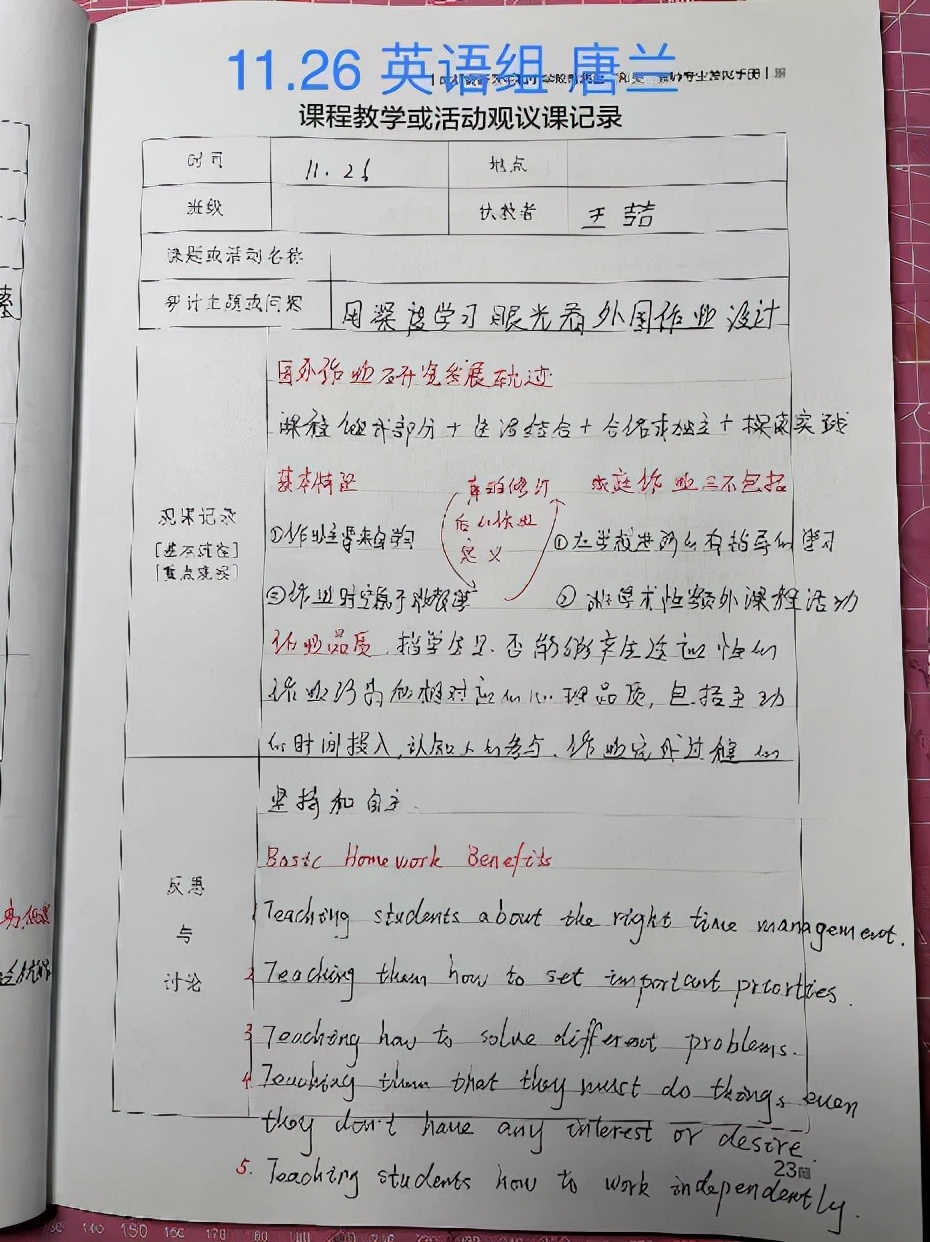 11.26 英语组 唐兰
课程教学或活动观议课记录
时间 11.26 地点
班级 执教者 王喆
课题或活动名称
研讨主题或问题 用深度学习眼光看外国作业设计
国外作业研究发展轨迹
课程组成部分+生活结合+合作或独立+探索实践
基本特征 库珀修订后的作业定义 家庭作业三不包括
观课记录
[基本过程]
[重点观察]
①作业主要来自学习 ①在学校进行的有指导的学习
②作业时空属于非教学 ② 非学术性额外课程活动
作业品质 指学生是否能够产生适应性的
作业行为和相对应的心理品质,包括主动
的时间投入,认知上的参与、作业完成过程的
坚持和自主.
Basic Homework Benefits
反思
与
讨论
1 Teaching students about the right time management.
2 Teaching them how to set important priorties.
3 Teaching how to solve different problems.
4 Teaching them that they must do things even
they don't have any interest or desire.
5. Teaching students how to work independently.
23